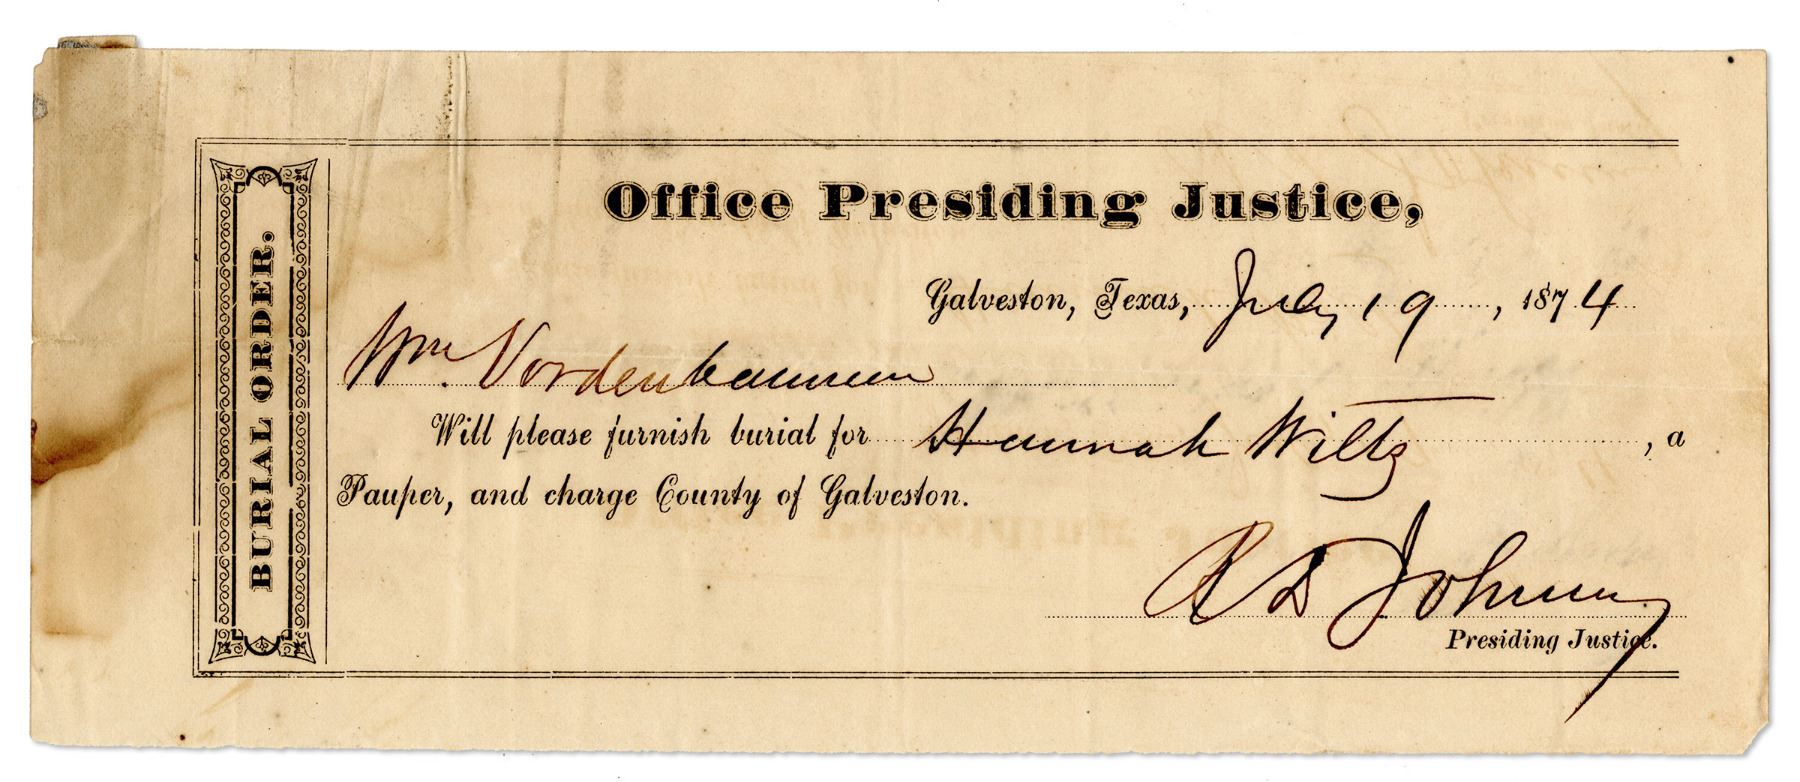 BURIAL ORDER.
Office Presiding Justice,
Galveston, Texas, July 19, 1874
Wm. Vordenbaumen
Will please furnish burial for Hannah Wiltz, a
Pauper, and charge County of Galveston.
R D Johnson
Presiding Justice.